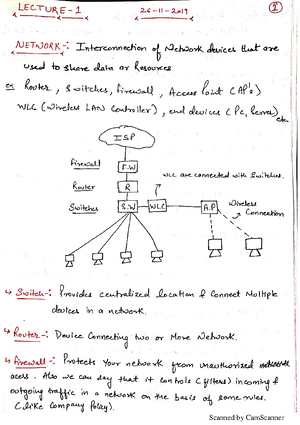 LECTURE-1
26-11-2019
1
NETWORK-: Interconnection of Network devices that are
used to share data or Resources.
ex Router, Switches, Firewall, Access Point (AP's)
WLC (Wireless LAN Controller), end devices (Pc, Server) etc.
ISP
Firewall
F.W
Router
R
WLC are connected with Switches.
Switches
S.W
WLC
A.P
Wireless
Connection
↳ Switch-: Provides centralized location & Connect Multiple
devices in a network.
↳ Router-: Device Connecting two or More Network.
↳ Firewall-: Protects Your network from unauthorized
acess. Also we can say that it controls (filters) incoming &
outgoing traffic in a network on the basis of some rules.
(Like Company Policy).
Scanned by CamScanner